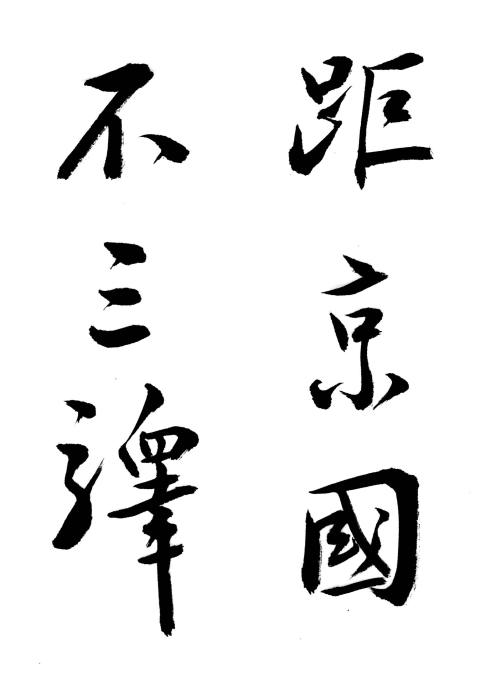 距京國
不三譯